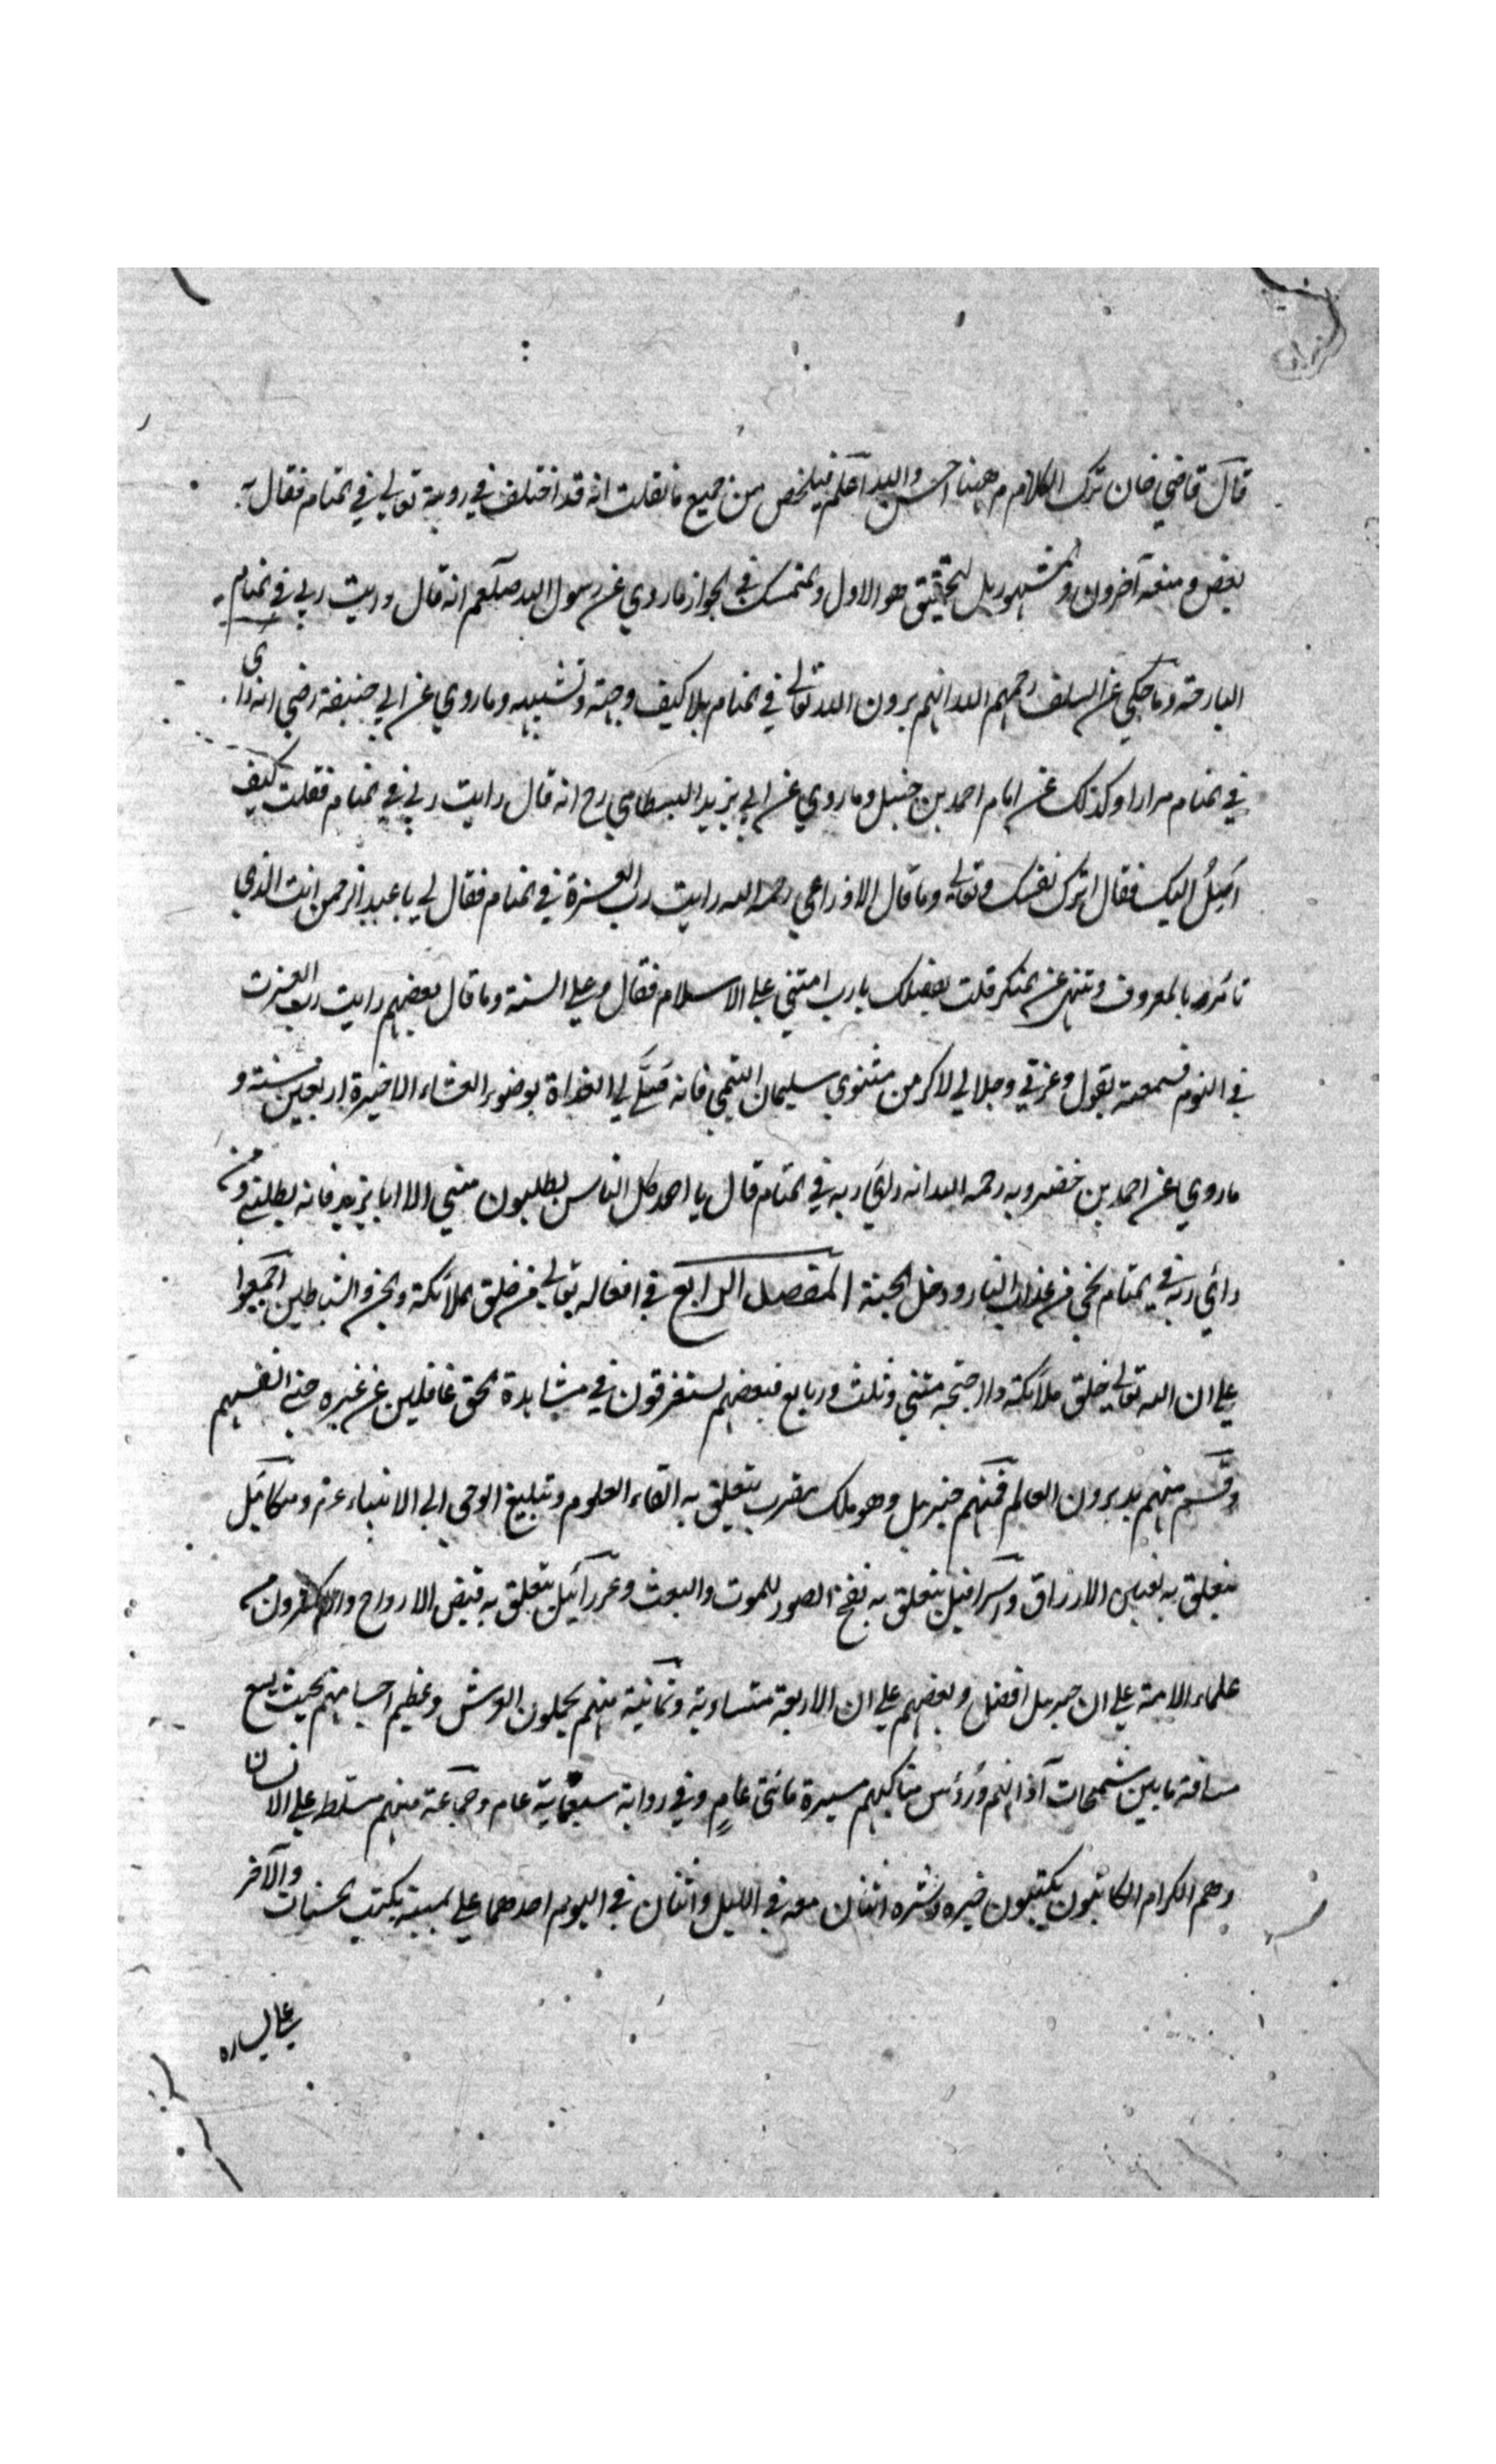 قال قاضي خان ترك الكلام ههنا احسن والله اعلم فيلخص من جميع ما نقلت انه قد اختلف في روية تعالى في المنام فقال به
بعض ومنعه آخرون والمشهور بل التحقيق هو الاول والمتمسك في الجواز ما روي عن رسول الله صلعم انه قال رايت ربي في المنام
البارحة وما حكي عن السلف رحمهم الله انهم يرون الله تعالى في المنام بلا كيف وجهة وتشبيه وما روي عن ابي حنيفة رضي انه راى
في المنام مرارا وكذلك عن امام احمد بن حنبل وما روي عن ابي يزيد البسطامي رح انه قال رايت ربي في المنام فقلت كيف
اصل اليك فقال اترك نفسك وتعال وما قال الاوزاعي رحمه الله رايت رب العزة في المنام فقال لي يا عبد الرحمن انت الذي
تامر بالمعروف وتنهى عن المنكر قلت بفضلك يارب امتني على الاسلام فقال وعلى السنة وما قال بعضهم رايت رب العزت
في النوم فسمعته يقول وعزتي وجلالي لاكرمن مثنوي سليمان التيمي فانه صلى لي الغداة بوضوء العشاء الاخيرة اربعين سنة و
ما روي عن احمد بن خضرويه رحمه الله انه راى ربه في المنام قال يا احمد كل الناس يطلبون مني الا ابا يزيد فانه يطلبني ومن
رأي ربه في المنام نجي من عذاب النار ودخل الجنة المقصد الرابع في افعاله تعالى من خلق الملائكة والجن والشياطين اجمعوا
على ان الله تعالى خلق ملائكة واجنحة مثنى وثلث ورباع فبعضهم يستغرقون في مشاهدة الحق غافلين عن غيره حتى انفسهم
وقسم منهم يدبرون العالم فمنهم جبريل وهو ملك مقرب يتعلق به القاء العلوم وتبليغ الوحي الى الانبياء عم وميكائيل
يتعلق به تعيين الارزاق واسرافيل يتعلق به نفخ الصور للموت والبعث وعزرائيل يتعلق به قبض الارواح من
علماء الامة على ان جبريل افضل وبعضهم على ان الاربعة متساوية وثمانية منهم يحملون العرش وعظيم اجسامهم بحيث يسع
مسافة ما بين شحمات آذانهم ورؤس مناكبهم مسيرة مائتي عام وفي رواية سبعماية عام وجماعة منهم مسلط على الانسان
وهم الكرام الكاتبون يكتبون خيره وشره اثنان معه في الليل واثنان في اليوم احدهما على يمينه يكتب الحسنات والآخر
على يساره